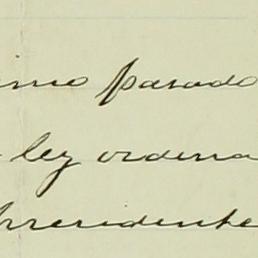 imo pasado
ley ordena
Presidente